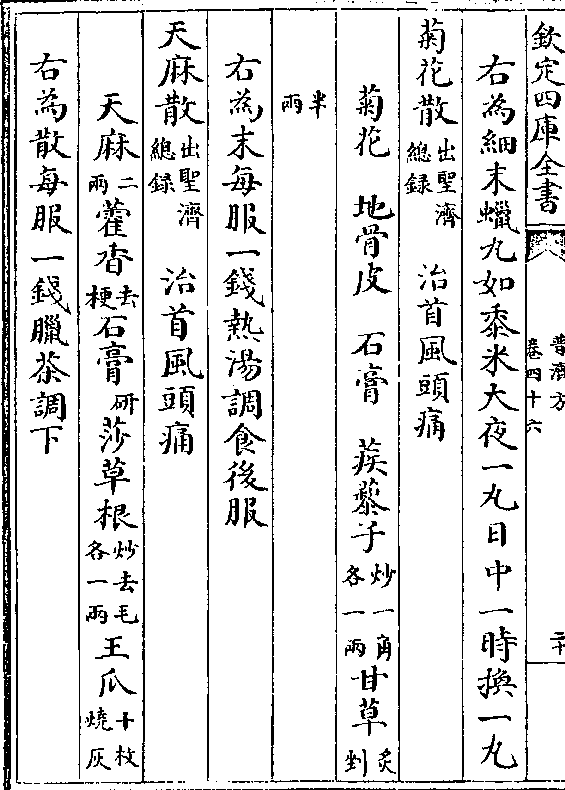 欽定四庫全書
普濟方
卷四十六
二十
右為細末蠟丸如黍米大夜一丸日中一時換一丸
菊花散出聖濟總録 治首風頭痛
菊花 地骨皮 石膏 蒺藜子炒一角各一兩甘草炙剉
半兩
右為末每服一錢熱湯調食後服
天麻散出聖濟總録 治首風頭痛
天麻二兩藿香去梗石膏研莎草根炒去毛各一兩王瓜十枚燒灰
右為散每服一錢臘茶調下